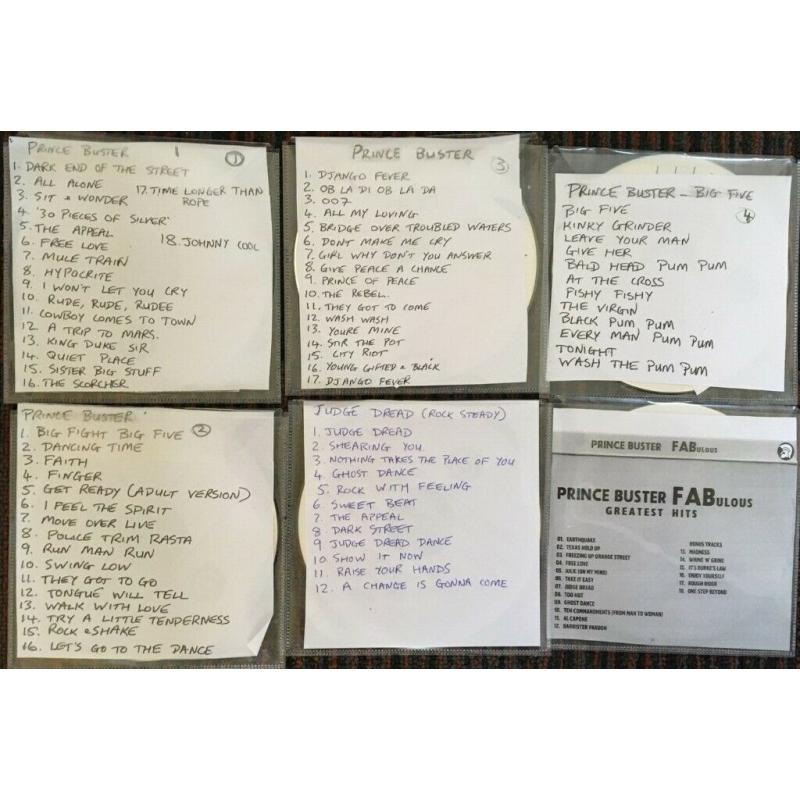 PRINCE BUSTER 1 1
1. DARK END OF THE STREET
2. ALL ALONE
3. SIT & WONDER
4. '30 PIECES OF SILVER'
5. THE APPEAL
6. FREE LOVE
7. MULE TRAIN
8. HYPOCRITE
9. I WON'T LET YOU CRY
10. RUDE, RUDE, RUDEE
11. COWBOY COMES TO TOWN
12. A TRIP TO MARS.
13. KING DUKE SIR
14. QUIET PLACE
15. SISTER BIG STUFF
16. THE SCORCHER
17. TIME LONGER THAN
ROPE
18. JOHNNY COOL
PRINCE BUSTER 3
1. DJANGO FEVER
2. OB LA DI OB LA DA
3. 007
4. ALL MY LOVING
5. BRIDGE OVER TROUBLED WATERS
6. DONT MAKE ME CRY
7. GIRL WHY DON'T YOU ANSWER
8. GIVE PEACE A CHANCE
9. PRINCE OF PEACE
10. THE REBEL.
11. THEY GOT TO COME
12. WASH WASH
13. YOURE MINE
14. STIR THE POT
15. CITY RIOT
16. YOUNG GIFTED & BLACK
17. DJANGO FEVER
PRINCE BUSTER - BIG FIVE
4
BIG FIVE
KINKY GRINDER
LEAVE YOUR MAN
GIVE HER
BALD HEAD PUM PUM
AT THE CROSS
FISHY FISHY
THE VIRGIN
BLACK PUM PUM
EVERY MAN PUM PUM
TONIGHT
WASH THE PUM PUM
PRINCE BUSTER
2
1. BIG FIGHT BIG FIVE
2. DANCING TIME
3. FAITH
4. FINGER
5. GET READY (ADULT VERSION)
6. I FEEL THE SPIRIT
7. MOVE OVER LIVE
8. POLICE TRIM RASTA
9. RUN MAN RUN
10. SWING LOW
11. THEY GOT TO GO
12. TONGUE WILL TELL
13. WALK WITH LOVE
14. TRY A LITTLE TENDERNESS
15. ROCK & SHAKE
16. LET'S GO TO THE DANCE
JUDGE DREAD (ROCK STEADY)
1. JUDGE DREAD
2. SHEARING YOU
3. NOTHING TAKES THE PLACE OF YOU
4. GHOST DANCE
5. ROCK WITH FEELING
6. SWEET BEAT
7. THE APPEAL
8. DARK STREET
9. JUDGE DREAD DANCE
10. SHOW IT NOW
11. RAISE YOUR HANDS
12. A CHANGE IS GONNA COME
PRINCE BUSTER FABULOUS
PRINCE BUSTER FABULOUS
GREATEST HITS
01. EARTHQUAKE
02. TEXAS HOLD UP
03. FREEZING UP ORANGE STREET
04. FREE LOVE
05. JULIE (ON MY MIND)
06. TAKE IT EASY
07. JUDGE DREAD
08. TOO HOT
09. GHOST DANCE
10. TEN COMMANDMENTS (FROM MAN TO WOMAN)
11. AL CAPONE
12. BARRISTER PARDON
BONUS TRACKS
13. MADNESS
14. WHINE 'N' GRINE
15. IT'S BURKE'S LAW
16. ENJOY YOURSELF
17. ROUGH RIDER
18. ONE STEP BEYOND